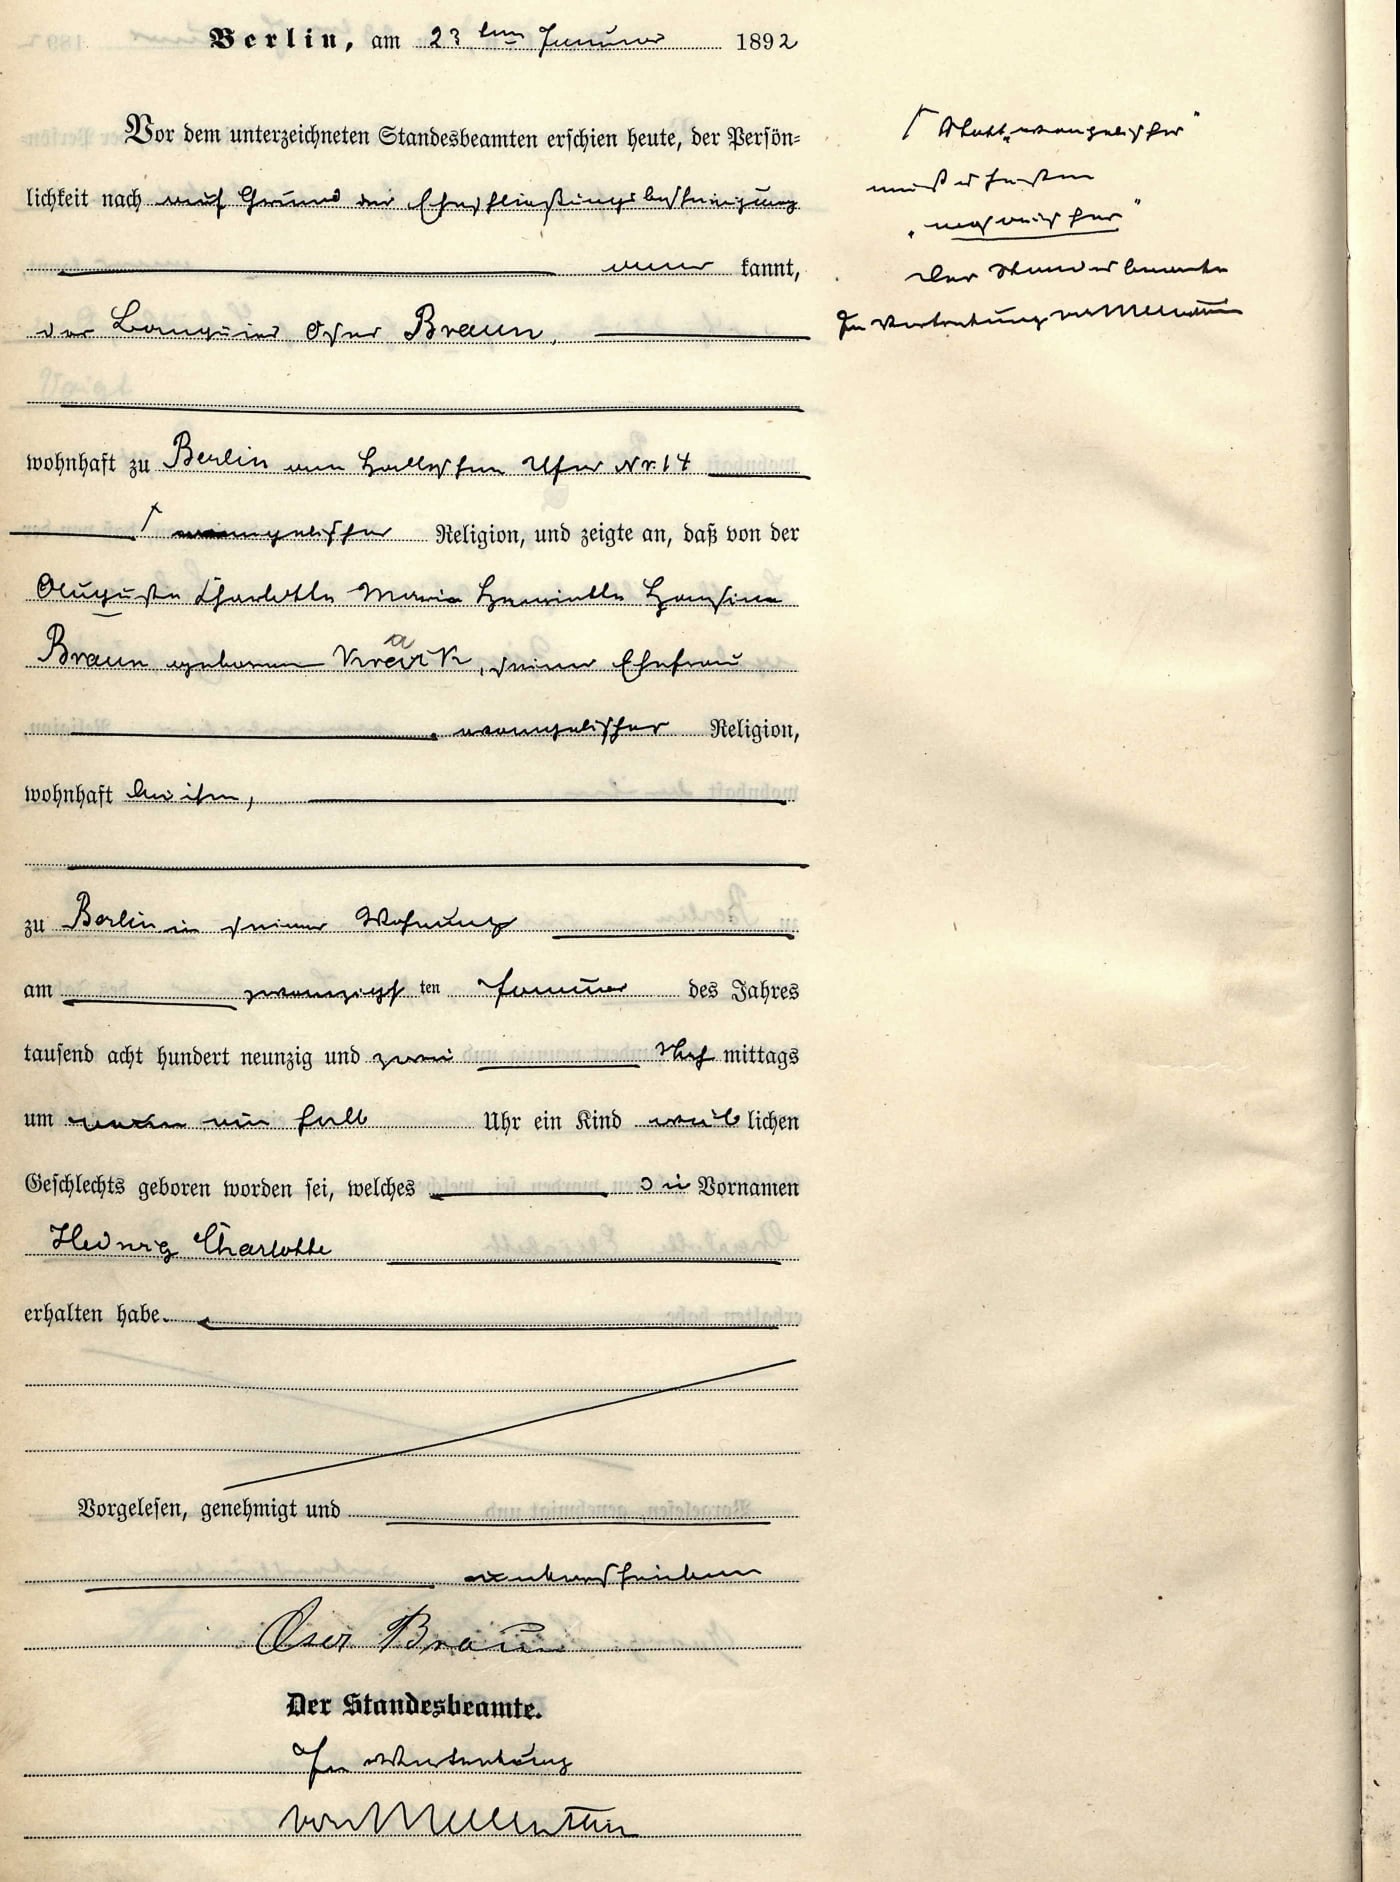 Berlin, am 23ten Januar 1892
Vor dem unterzeichneten Standesbeamten erschien heute, der Persön-
lichkeit nach auf Grund der Eheschließungsbescheinigung
aner kannt,
der Banquier Oser Braun,
wohnhaft zu Berlin am Halleschen Ufer Nr. 14
⌈ evangelischer Religion, und zeigte an, daß von der
Auguste Charlotte Marie Henriette Hansine
Braun geborenen Kraak, seiner Ehefrau
evangelischer Religion,
wohnhaft bei ihm,
zu Berlin in seiner Wohnung
am zwanzigsten Januar des Jahres
tausend acht hundert neunzig und zwei Nach mittags
um ein halb Uhr ein Kind weiblichen
Geschlechts geboren worden sei, welches die Vornamen
Hedwig Charlotte
erhalten habe.
Vorgelesen, genehmigt und
unterschrieben
Oser Braun
Der Standesbeamte.
In Vertretung
von Mellenthin
⌈ Statt „evangelischer"
muß es heißen
„mosaischer"
Der Standesbeamte
In Vertretung von Mellenthin